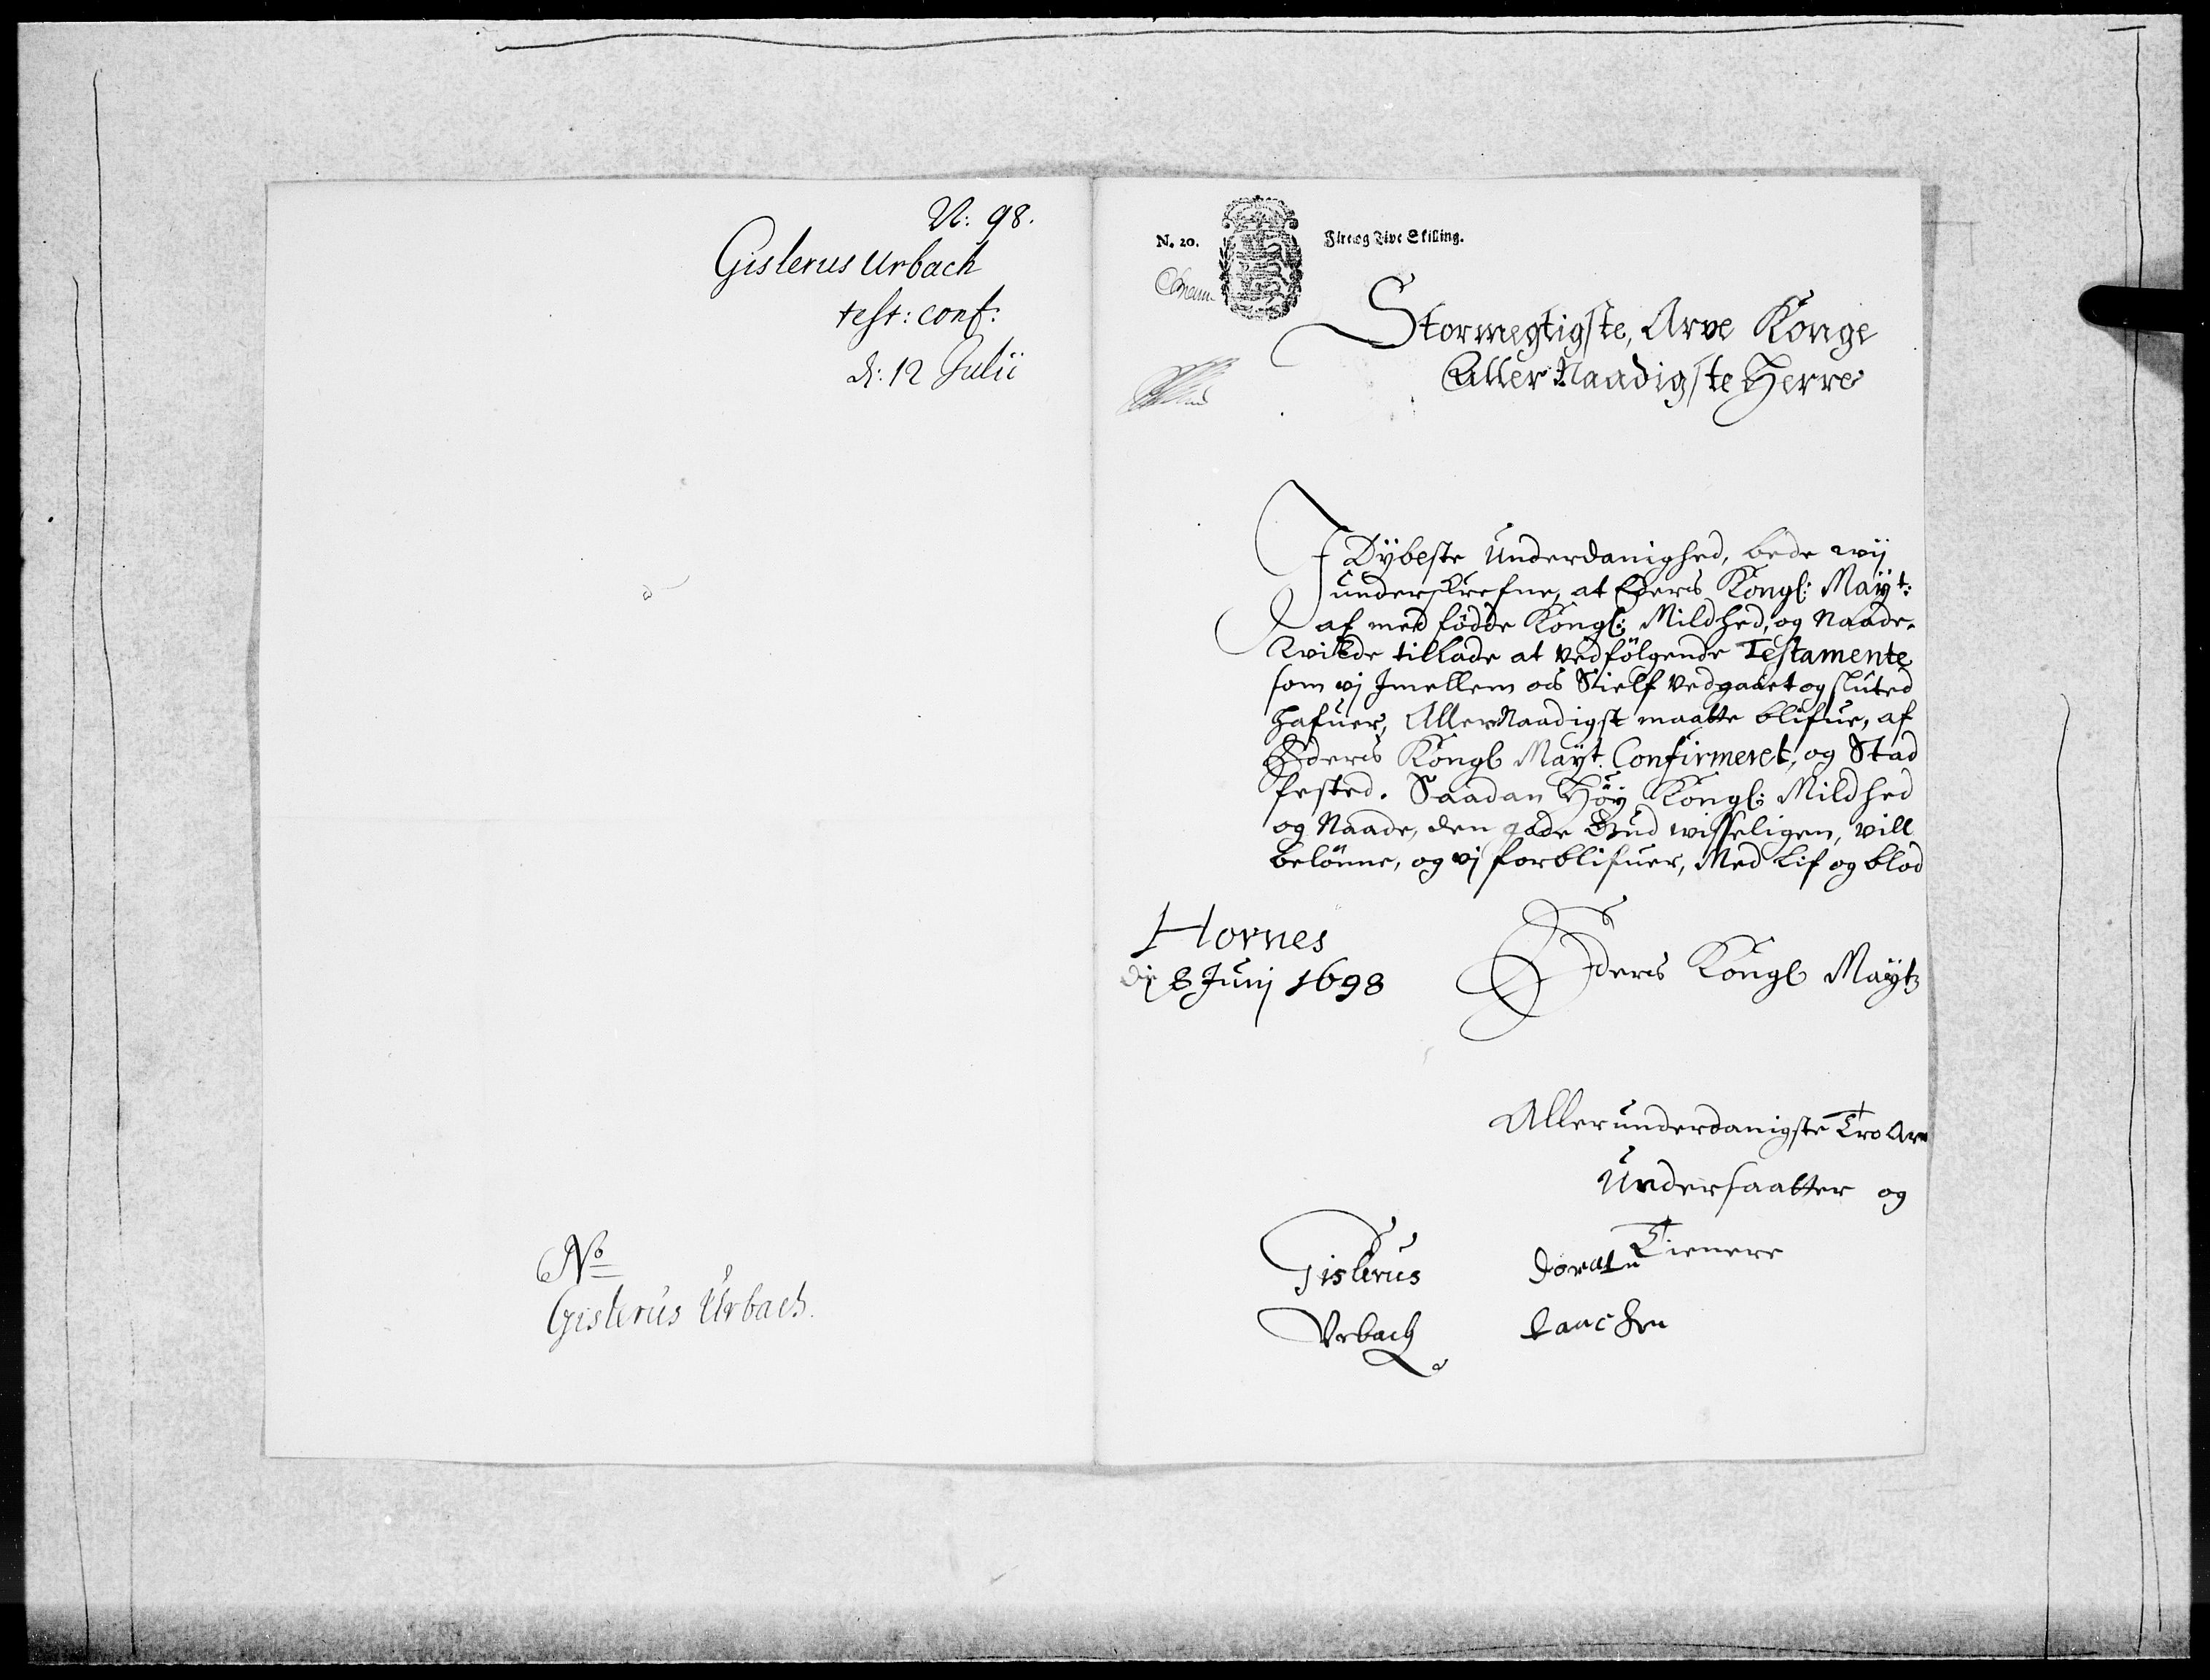 N: 98.
Gislerus Urbach
test: conf:
d: 12 Julii
No
Gislerus Urbach.
N. 20.
Fire og Tive Skilling.
Stormegtigste, Arve Konge
Aller Naadigste Herre
I Dybeste Underdanighed, bede wij
underskrefne, at Eders Kongl: Mayt:
af med fødde Kongl: Mildhed, og Naade,
Wilde tillade at vedfölgende Testamente
som vj Jmellem os Sielf vedgaaet og sluted
hafuer, Aller Naadigst maatte blifue, af
Eders Kongl Mayt. Confirmeret, og Stad
fested. Saadan Høy Kongl: Mildhed
og Naade, den gode Gud wisseligen, vill
belönne, og vj forblifuer, Med Lif og blod
Hornes
8 Junj 1698
Eders Kongl Mayts
Allerunderdanigste Tro Arv
Undersaatter og
Tienere
Gislerus
Urbach